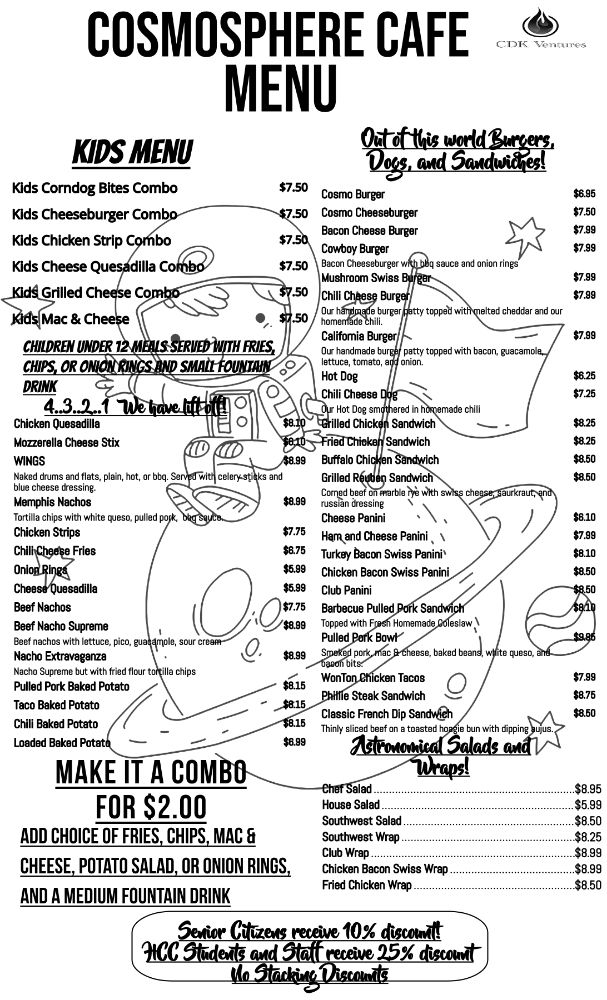 COSMOSPHERE CAFE
MENU
CDK Ventures
KIDS MENU
Kids Corndog Bites Combo $7.50
Kids Cheeseburger Combo $7.50
Kids Chicken Strip Combo $7.50
Kids Cheese Quesadilla Combo $7.50
Kids Grilled Cheese Combo $7.50
Kids Mac & Cheese $7.50
CHILDREN UNDER 12 MEALS SERVED WITH FRIES,
CHIPS, OR ONION RINGS AND SMALL FOUNTAIN
DRINK
4..3..2..1 We have lift off!
Chicken Quesadilla $8.10
Mozzerella Cheese Stix $6.10
WINGS $8.99
Naked drums and flats, plain, hot, or bbq. Served with celery sticks and
blue cheese dressing.
Memphis Nachos $8.99
Tortilla chips with white queso, pulled pork, bbq sauce.
Chicken Strips $7.75
Chili Cheese Fries $6.75
Onion Rings $5.99
Cheese Quesadilla $5.99
Beef Nachos $7.75
Beef Nacho Supreme $8.99
Beef nachos with lettuce, pico, guacamole, sour cream
Nacho Extravaganza $8.99
Nacho Supreme but with fried flour tortilla chips
Pulled Pork Baked Potato $8.15
Taco Baked Potato $8.15
Chili Baked Potato $8.15
Loaded Baked Potato $6.99
MAKE IT A COMBO
FOR $2.00
ADD CHOICE OF FRIES, CHIPS, MAC &
CHEESE, POTATO SALAD, OR ONION RINGS,
AND A MEDIUM FOUNTAIN DRINK
Out of this world Burgers,
Dogs, and Sandwiches!
Cosmo Burger $6.95
Cosmo Cheeseburger $7.50
Bacon Cheese Burger $7.99
Cowboy Burger $7.99
Bacon Cheeseburger with bbq sauce and onion rings
Mushroom Swiss Burger $7.99
Chili Cheese Burger $7.99
Our handmade burger patty topped with melted cheddar and our
homemade chili.
California Burger $7.99
Our handmade burger patty topped with bacon, guacamole,
lettuce, tomato, and onion.
Hot Dog $6.25
Chili Cheese Dog $7.25
Our Hot Dog smothered in homemade chili
Grilled Chicken Sandwich $8.25
Fried Chicken Sandwich $8.25
Buffalo Chicken Sandwich $8.50
Grilled Reuben Sandwich $8.50
Corned beef on marble rye with swiss cheese, saurkraut, and
russian dressing
Cheese Panini $6.10
Ham and Cheese Panini $7.99
Turkey Bacon Swiss Panini $8.10
Chicken Bacon Swiss Panini $8.50
Club Panini $8.50
Barbecue Pulled Pork Sandwich $8.10
Topped with Fresh Homemade Coleslaw
Pulled Pork Bowl $9.85
Smoked pork, mac & cheese, baked beans, white queso, and
bacon bits.
WonTon Chicken Tacos $7.99
Phillie Steak Sandwich $8.75
Classic French Dip Sandwich $8.50
Thinly sliced beef on a toasted hoagie bun with dipping aujus.
Astronomical Salads and
Wraps!
Chef Salad $8.95
House Salad $5.99
Southwest Salad $8.50
Southwest Wrap $8.25
Club Wrap $8.99
Chicken Bacon Swiss Wrap $8.99
Fried Chicken Wrap $8.50
Senior Citizens receive 10% discount!
HCC Students and Staff receive 25% discount
No Stacking Discounts